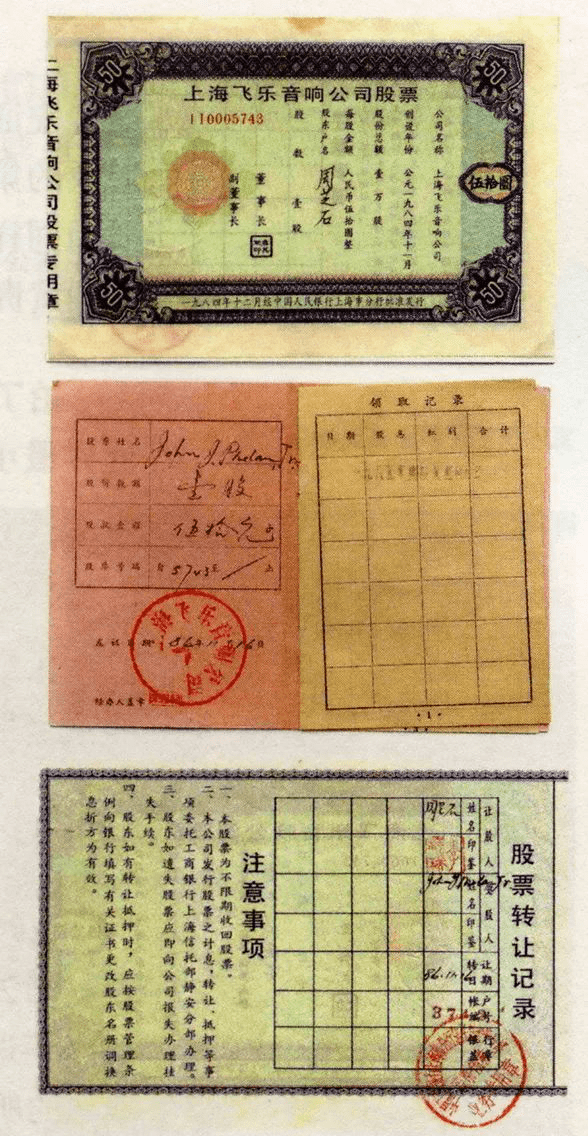 上海飞乐音响公司股票专用章
50
50
上海飞乐音响公司股票
110005743
公司名称 上海飞乐音响公司
创设年份 公元一九八四年十一月
股份总额 壹万股
每股金额 人民币伍拾圆整
股东户名 周芝石
股数 壹股
董事长
副董事长
伍拾圆
50
50
一九八四年十二月经中国人民银行上海市分行批准发行
股东姓名 John J. Phelan, Jr.
股份数额 壹股
股款金额 伍拾元
股票号码 自5743至 止
发证日期
上海飞乐音响公司
经办人盖章
领取记录
日期 股息 红利 合计
·1·
股票转让记录
让股人姓名印鉴
周芝石
受股人姓名印鉴
John J. Phelan, Jr.
转让日期
86.11.16
户帐号
37
注意事项
一、本股票为不限期收回股票。
二、本公司发行股票之计息,转让、抵押等事
项委托工商银行上海信托部静安分部办理。
三、股东如遗失股票应即向公司报失办理挂
失手续。
四、股东如有转让抵押时,应按股票管理条
例向银行填写有关证书更改股东名册调换
息折方为有效。